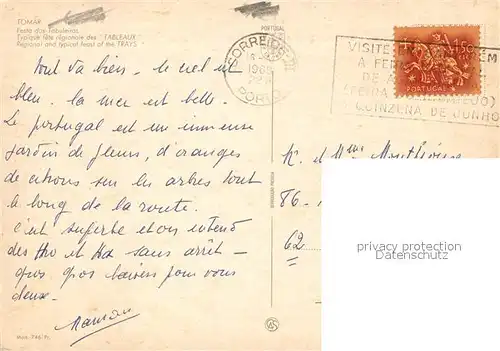 TOMAR
Festa dos Tabuleiros
Typique fête régionale des "TABLEAUX
Regional and typical feast of the TRAYS
PORTUGAL
Tout va bien - le ciel est
bleu. la mer est belle.
Le portugal est un immense
jardin de fleurs, d'oranges
de citrons sur les arbres tout
le long de la route.
c'est superbe et on entend
des Ho et Ha sans arrêt -
gros gros baisers pour vous
deux -
Maman
CORREIOS
1969
PORTO
VISITE
A FEIRA
DE A
(FEIRA
QUINZENA DE JUNHO
1$50
PORTUGAL
M. et Mme
86 -
62
privacy protection
ansichtskartenhandel.de